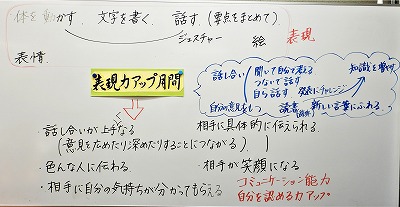 体を動かす、文字を書く、話す（要点をまとめて）
ジェスチャー　絵　表現
表情
表現力アップ月間
話し合い
聞いて自分で考える
つないで話す
自ら話す　発表にチャレンジ
知識を増す
自分の意見をもつ　読書　新しい言葉にふれる
・話し合いが上手になる
（意見を広めたり深めたりすることにつながる）
・相手に具体的に伝えられる
・色んな人に伝わる
・相手が笑顔になる
・相手に自分の気持ちが分かってもらえる
コミュニケーション能力
自分を認める力アップ